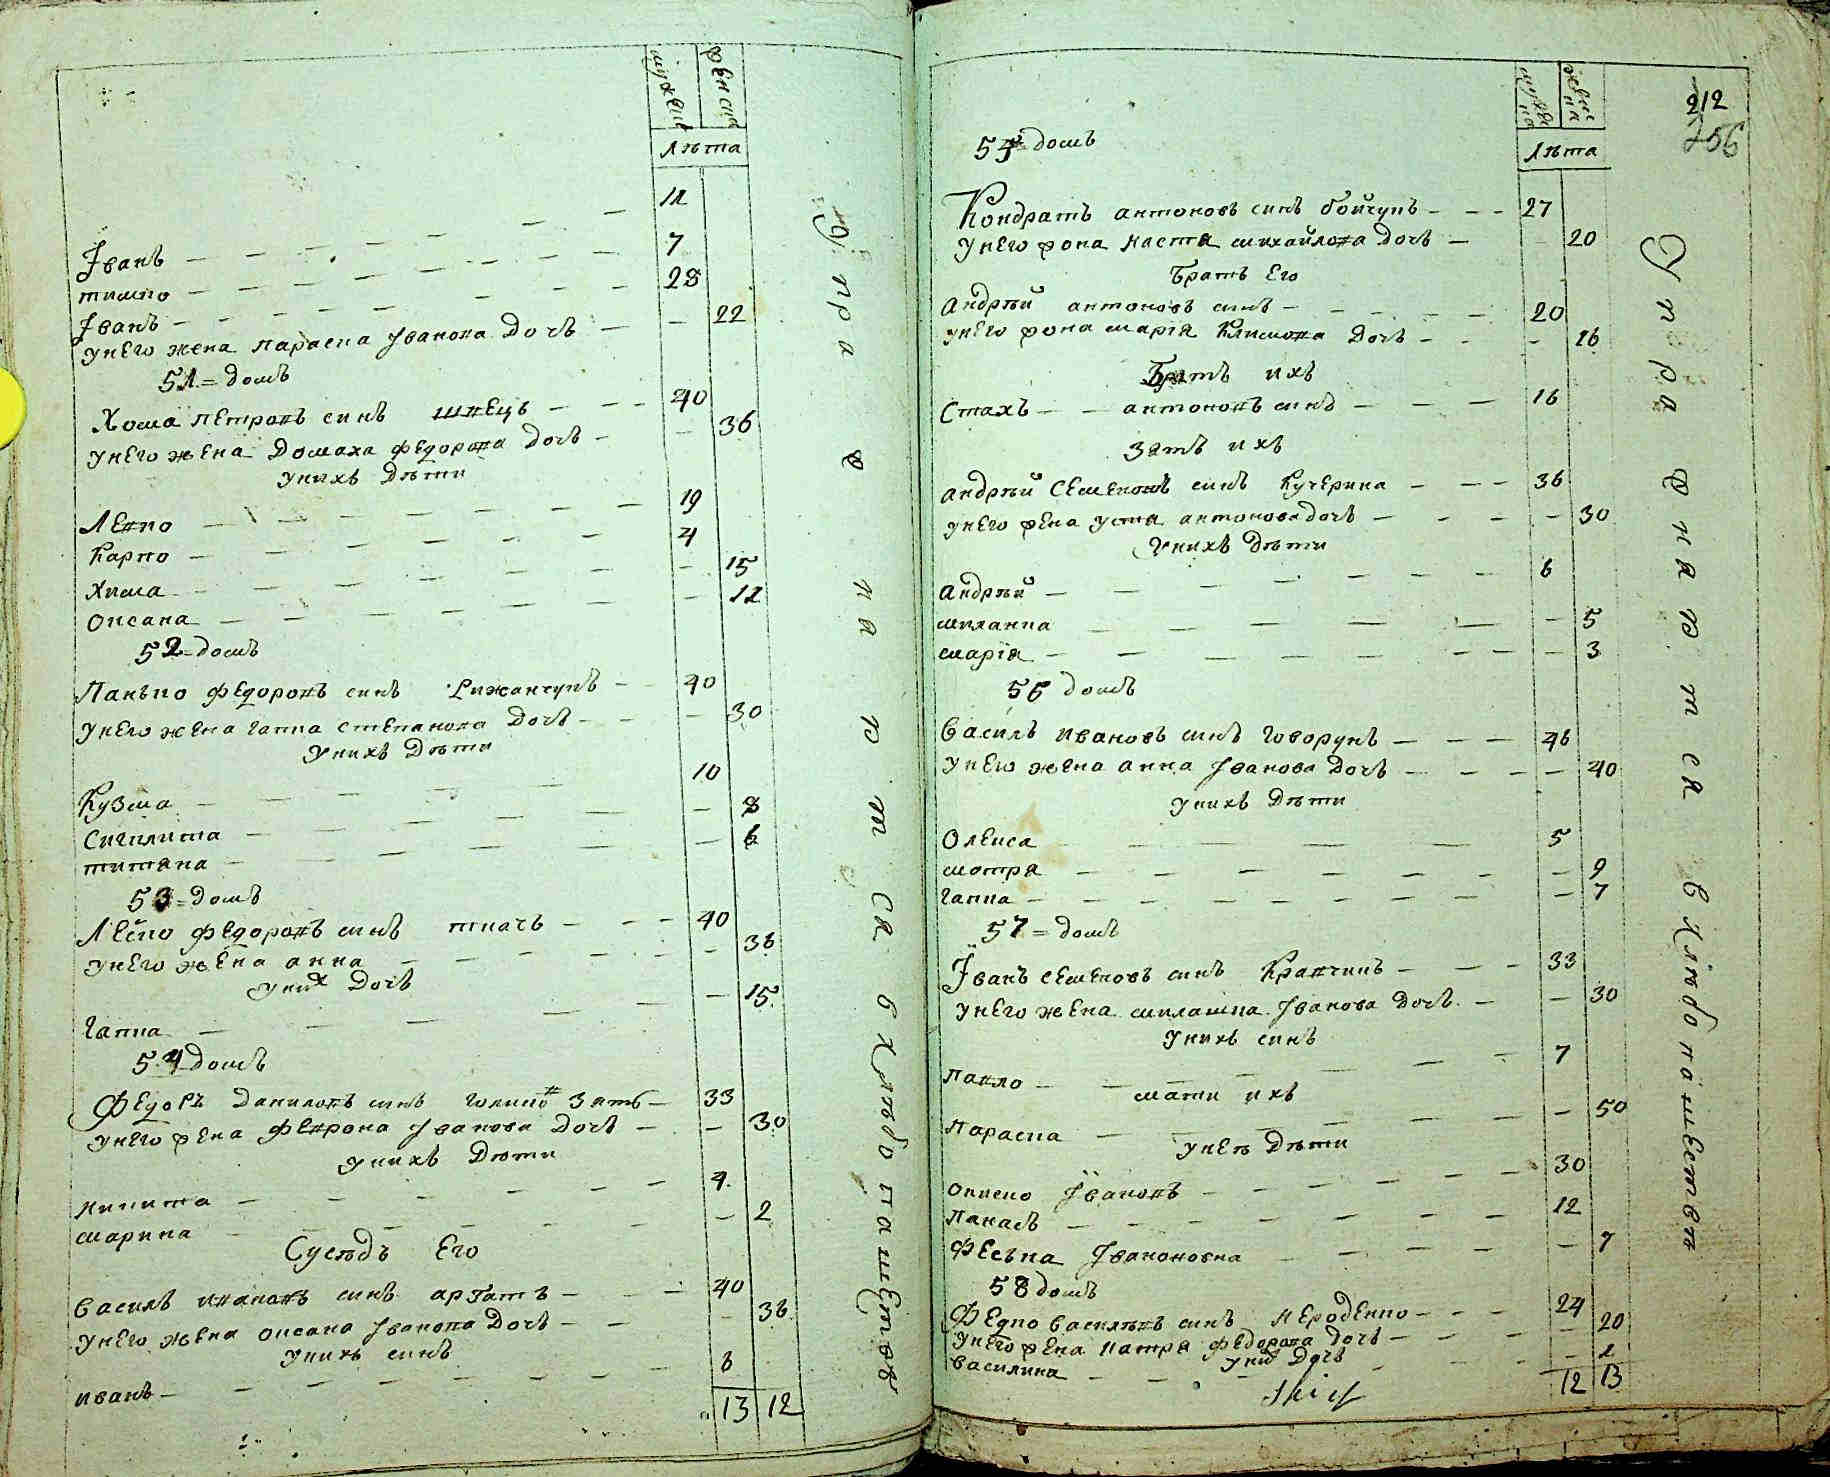 мужеска женска
Лѣта
Іванъ — 11
тишко — 7
Іванъ — 28
унего жена параска Іванова Дочъ — 22
51 = домъ
Хома петровъ синъ швецъ — 40
унего жена Домаха федорова дочъ — 36
унихъ Дѣти
Левко — 19
Карпо — 4
Хима — 15
оксана — 11
52 = домъ
Панько федоровъ синъ — 40
унего жена гапка степанова дочъ — 30
унихъ Дѣти
Кузма — 10
Сигклита — 8
титяна — 6
53 = домъ
Лейко федоровъ синъ ткачъ — 40
унего жена анна — 36
уних Дочъ
Гапка — 15
54 домъ
Федоръ Даниловъ синъ зять — 33
унего жена февронa Іванова Дочъ — 30
унихъ Дѣти
никита — 4
марина — 2
Сусѣдъ Его
василъ ивановъ синъ аргатъ — 40
унего жена оксана Іванова Дочъ — 36
унихъ синъ
иванъ — 6
13 12
у пра ф на ж т ся в хлѣбопашествѣ
мужеска женска
212
256
55 домъ
Лѣта
Кондратъ антоновъ синъ бойчукъ — 27
унего жона настя михайлова Дочъ — 20
братъ Его
андрѣй антоновъ синъ — 20
унего жона марія климова Дочъ — 16
братъ ихъ
Стахъ — антоновъ синъ — 16
зятъ ихъ
андрѣй Семеновъ синъ Кучерина — 36
унего жена устя антонова дочъ — 30
унихъ Дѣти
андрѣй — 6
миланка — 5
марія — 3
56 домъ
василъ ивановъ синъ говорунъ — 46
унего жена анна Іванова Дочъ — 40
унихъ Дѣти
Олекса — 5
мотря — 9
гапка — 7
57 = домъ
Іванъ семеновъ синъ Кравчикъ — 33
унего жена милашка Іванова Дочъ — 30
унихъ синъ
павло — 7
мати ихъ
параска — 50
унеѣ Дѣти
Івановъ — 30
панасъ — 12
феська Івановна — 7
58 домъ
Федко василѣвъ синъ — 24
унего жена катря федорова дочъ — 20
уних Дочъ
василина — 1
12 13
Упражнажтся в хлѣбопашествѣ